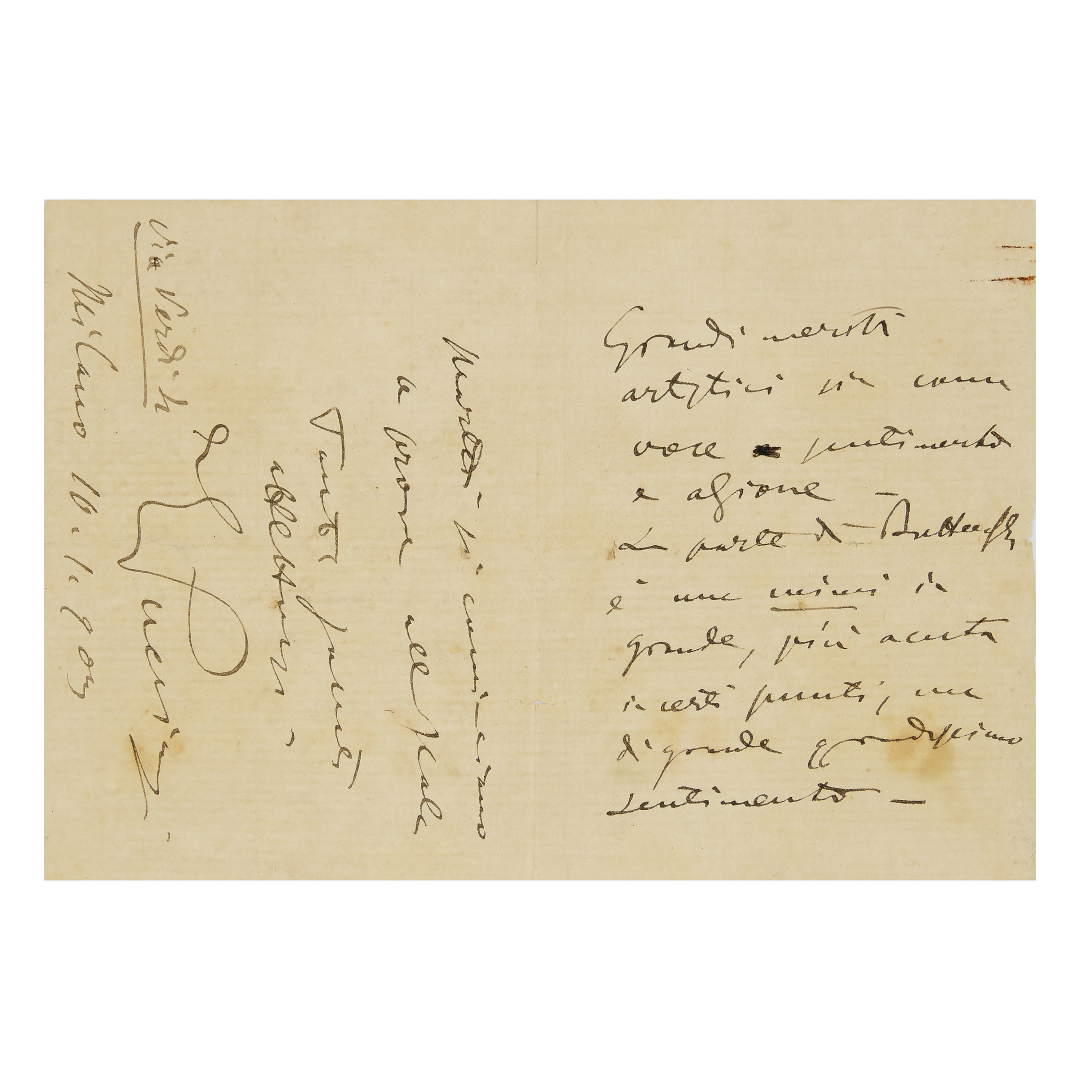 Grandi meriti
artistici sia come
voce sentimento
e azione –
La parte di Butterfly
è una mimi in
grande, più acuta
in certi punti, ma
di grande grandissimo
sentimento –
martedì si cominciano
a prove alla Scala
Tanti saluti
affettuosi
G Puccini
Via Verdi 4
Milano 16.1.904